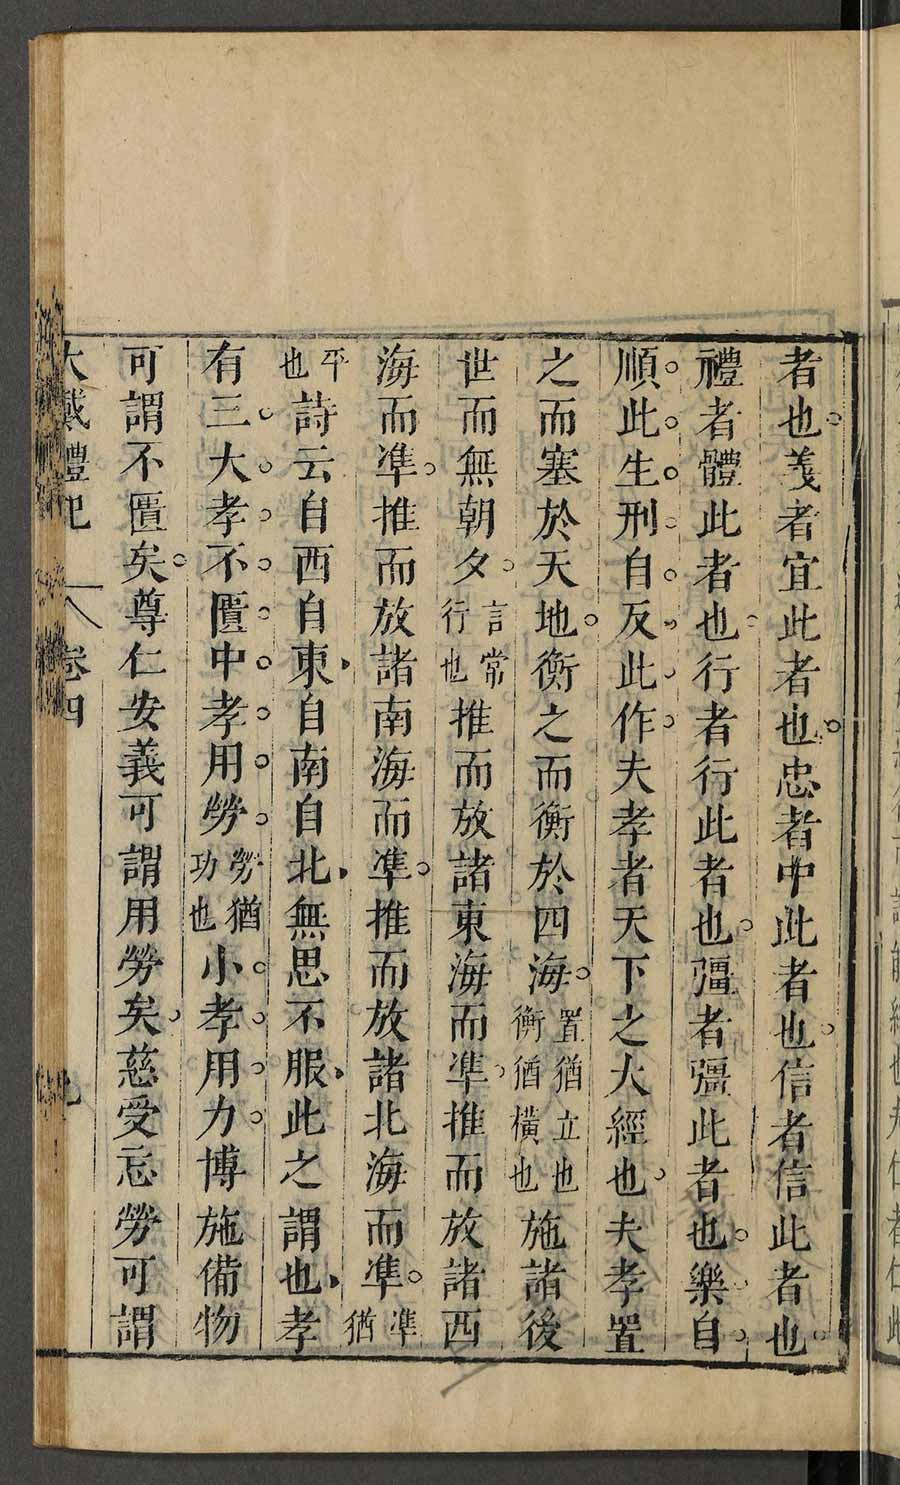 者也義者宜此者也忠者中此者也信者信此者也
禮者體此者也行者行此者也彊者彊此者也樂自
順此生刑自反此作夫孝者天下之大經也夫孝置
之而塞於天地衡之而衡於四海置猶立也衡猶橫也施諸後
世而無朝夕言常行也推而放諸東海而準推而放諸西
海而準推而放諸南海而準推而放諸北海而準準猶
平也詩云自西自東自南自北無思不服此之謂也孝
有三大孝不匱中孝用勞勞猶功也小孝用力博施備物
可謂不匱矣尊仁安義可謂用勞矣慈受忘勞可謂
大戴禮記 卷四 九